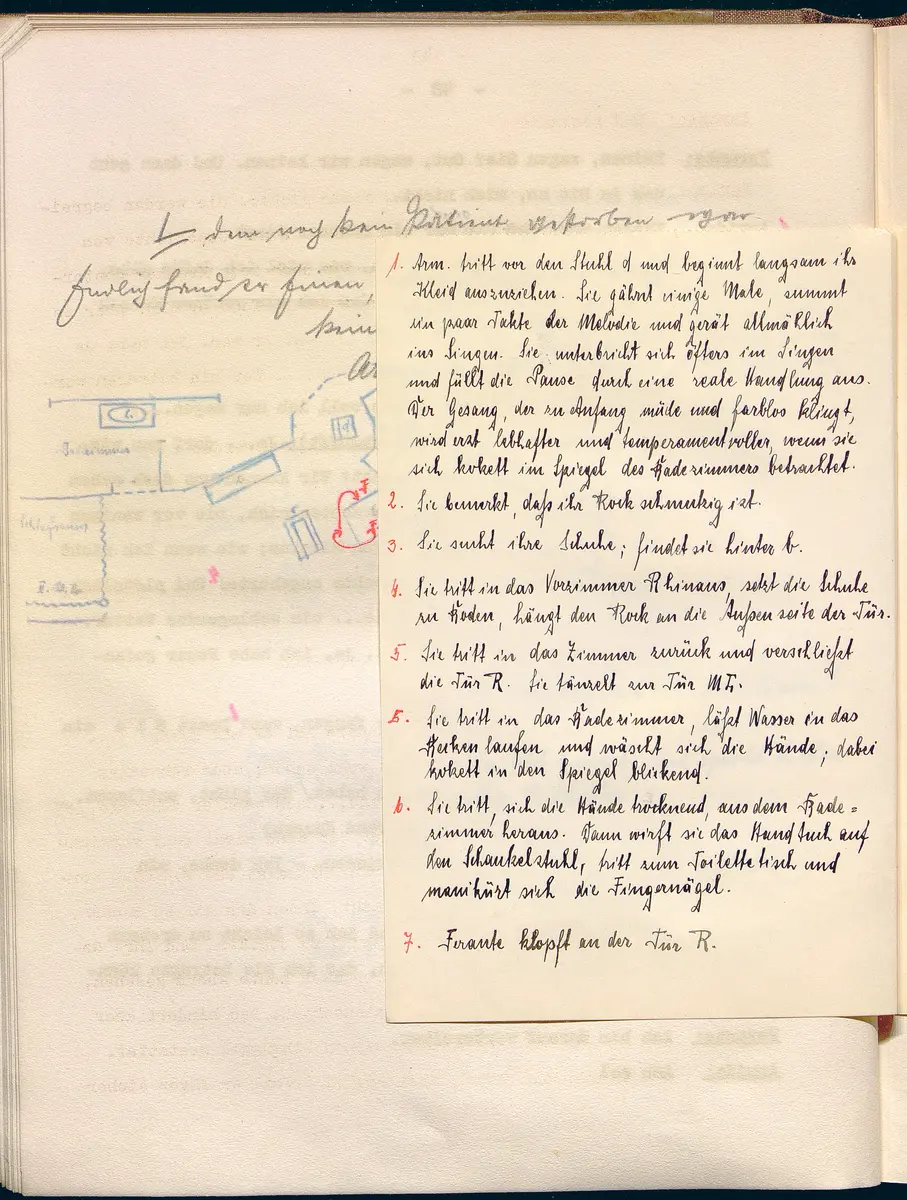 dem noch kein Patient gestorben war
Endlich fand er Einen,
kein
1. Arm. tritt vor den Stuhl d und beginnt langsam ihr
Kleid auszuziehen. Sie gähnt einige Male, summt
ein paar Takte der Melodie und gerät allmählich
ins Singen. Sie unterbricht sich öfters im Singen
und füllt die Pause durch eine reale Handlung aus.
Der Gesang, der zu Anfang müde und farblos klingt,
wird erst lebhafter und temperamentvoller, wenn sie
sich kokett im Spiegel des Badezimmers betrachtet.
2. Sie bemerkt, daß ihr Rock schmutzig ist.
3. Sie sucht ihre Schuhe; findet sie hinter b.
4. Sie tritt in das Vorzimmer R hinaus, setzt die Schuhe
zu Boden, hängt den Rock an die Außenseite der Tür.
5. Sie tritt in das Zimmer zurück und verschließt
die Tür R. Sie tänzelt zur Tür ML.
5. Sie tritt in das Badezimmer, läßt Wasser in das
Becken laufen und wäscht sich die Hände; dabei
kokett in den Spiegel blickend.
6. Sie tritt, sich die Hände trocknend, aus dem Bade=
zimmer heraus. Dann wirft sie das Handtuch auf
den Schaukelstuhl, tritt zum Toilettetisch und
manikürt sich die Fingernägel.
7. Ferante klopft an der Tür R.